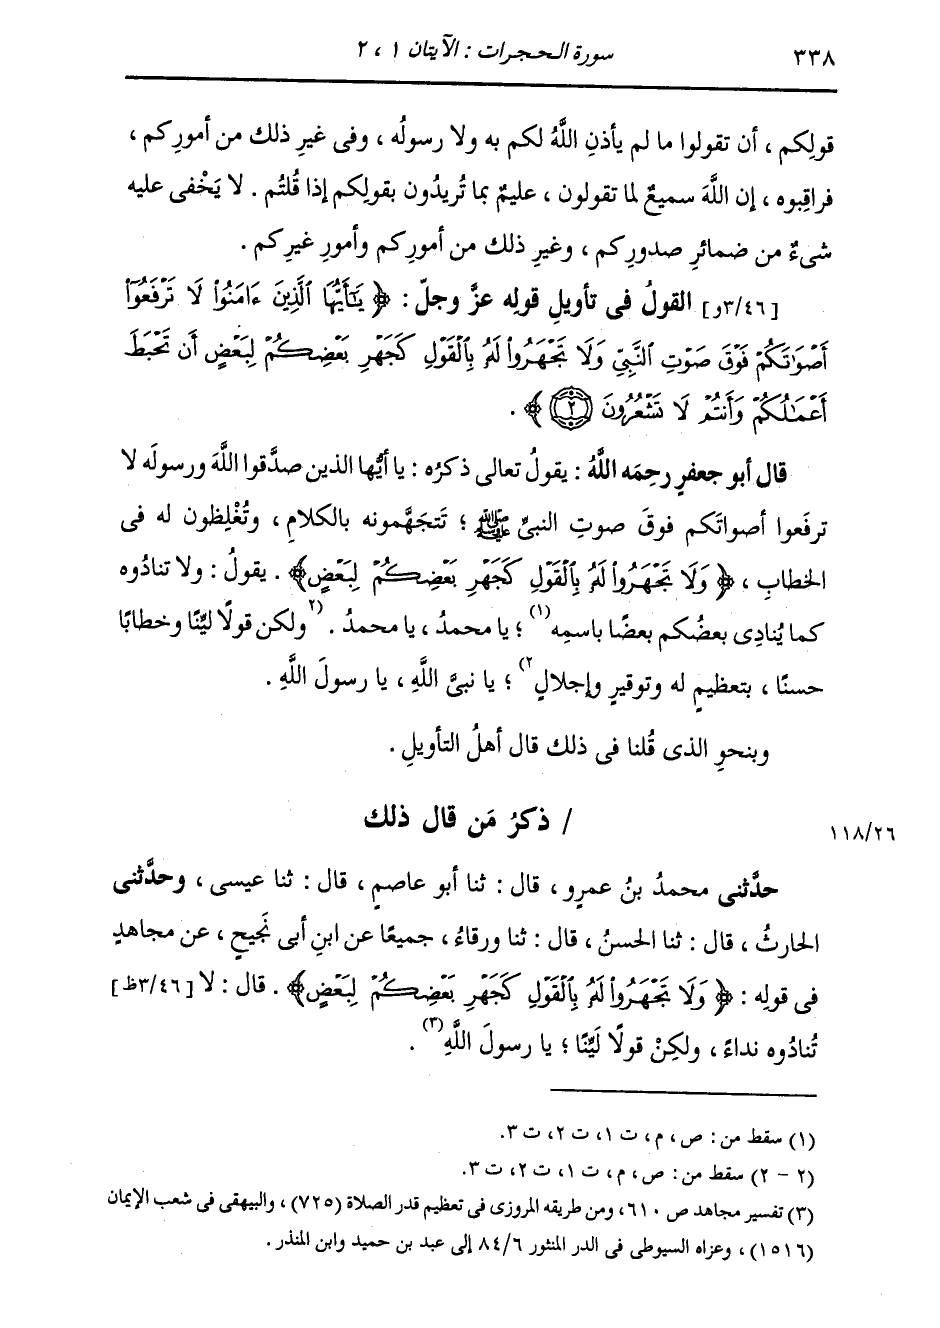 ٣٣٨ سورة الحجرات : الآيتان ١ ، ٢
قولِكم ، أن تقولوا ما لم يأذنِ اللَّهُ لكم به ولا رسولُه ، وفى غيرِ ذلك من أمورِكم ،
فراقِبوه ، إن اللَّهَ سميعٌ لما تقولون ، عليمٌ بما تُريدُون بقولِكم إذا قُلتُم . لا يَخْفى عليه
شىءٌ من ضمائرِ صدورِكم ، وغيرِ ذلك من أمورِكم وأمورِ غيرِكم .
[٣/٤٦و] القولُ فى تأويلِ قولِه عزَّ وجلّ : ﴿ يَٰٓأَيُّهَا ٱلَّذِينَ ءَامَنُوا۟ لَا تَرْفَعُوٓا۟
أَصْوَٰتَكُمْ فَوْقَ صَوْتِ ٱلنَّبِىِّ وَلَا تَجْهَرُوا۟ لَهُۥ بِٱلْقَوْلِ كَجَهْرِ بَعْضِكُمْ لِبَعْضٍ أَن تَحْبَطَ
أَعْمَٰلُكُمْ وَأَنتُمْ لَا تَشْعُرُونَ ٢ ﴾ .
قال أبو جعفرٍ رحِمَه اللَّهُ : يقولُ تعالى ذكرُه : يا أيُّها الذين صدَّقوا اللَّهَ ورسولَه لا
ترفَعوا أصواتَكم فوقَ صوتِ النبىِّ ﷺ ؛ تَتجَهَّمونه بالكلامِ ، وتُغْلِظون له فى
الخطابِ ، ﴿ وَلَا تَجْهَرُوا۟ لَهُۥ بِٱلْقَوْلِ كَجَهْرِ بَعْضِكُمْ لِبَعْضٍ﴾ . يقولُ : ولا تنادُوه
كما يُنادِى بعضُكم بعضًا باسمِه(١) ؛ يا محمدُ ، يا محمدُ . (٢ولكن قولًا ليِّنًا وخطابًا
حسنًا ، بتعظيمٍ له وتوقيرٍ وإجلالٍ٢) ؛ يا نبىَّ اللَّهِ ، يا رسولَ اللَّهِ .
وبنحوِ الذى قُلنا فى ذلك قال أهلُ التأويلِ .
/ ذكرُ مَن قال ذلك ١١٨/٢٦
حدَّثنى محمدُ بنُ عمرٍو ، قال : ثنا أبو عاصمٍ ، قال : ثنا عيسى ، وحدَّثنى
الحارثُ ، قال : ثنا الحسنُ ، قال : ثنا ورقاءُ ، جميعًا عن ابنِ أبى نَجيحٍ ، عن مجاهدٍ
فى قولِه : ﴿ وَلَا تَجْهَرُوا۟ لَهُۥ بِٱلْقَوْلِ كَجَهْرِ بَعْضِكُمْ لِبَعْضٍ﴾ . قال : لا [٣/٤٦ظ]
تُنادُوه نداءً ، ولكِنْ قولًا لَيِّنًا ؛ يا رسولَ اللَّهِ(٣) .
(١) سقط من : ص ، م ، ت ١، ت ٢، ت ٣.
(٢ - ٢) سقط من : ص ، م ، ت ١، ت ٢، ت ٣.
(٣) تفسير مجاهد ص ٦١٠، ومن طريقه المروزى فى تعظيم قدر الصلاة (٧٢٥) ، والبيهقى فى شعب الإيمان
(١٥١٦) ، وعزاه السيوطى فى الدر المنثور ٨٤/٦ إلى عبد بن حميد وابن المنذر .